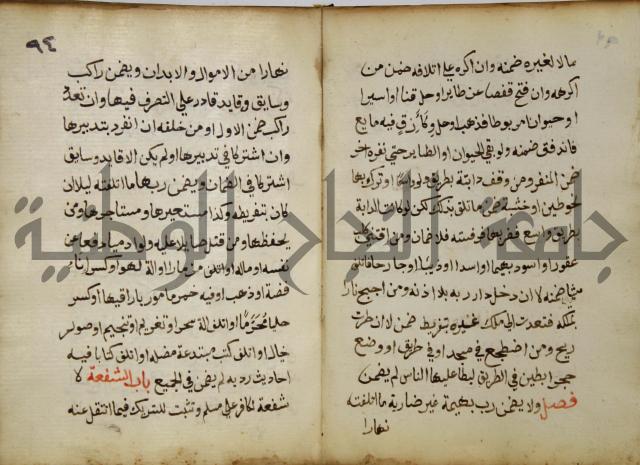 مالا لغيره ضمنه وان اكره على اتلافه ضمن من
اكرهه وان فتح قفصا عن طاير او حل قنا او اسيرا
او حيوانا مربوطا فذهب او حل وكاء زق فيه مايع
فاندفق ضمنه ولو بقي الحيوان او الطاير حتى نفره اخر
ضمن المنفر ومن وقف دابته بطريق ولو واسعا او ترك بها
نحو طين او خشبة ضمن ما تلف بذلك لكن لو كانت الدابة
بطريق واسع فضربها فرفسته فلا ضمان ومن اقتنى كلبا
عقورا او اسود بهيما او اسدا او ذيبا او جارحا فاتلف
شيا ضمنه لا ان دخل دار ربه بلا اذنه ومن اجج نارا
بملكه فتعدت الى ملك غيره بتفريط ضمن لا ان طرت
ريح ومن اضطجع في مسجد او في طريق او وضع
حجرا بطين في الطريق ليطا عليها الناس لم يضمن
فصل ولا يضمن رب بهيمة غير ضارية ما اتلفته
نهارا
٩٤
نهارا من الاموال والابدان ويضمن راكب
وسايق وقايد قادر على التصرف فيها وان تعدد
راكب ضمن الاول او من خلفه ان انفرد بتدبيرها
وان اشتركا في تدبيرها او لم يكن الا قايد وسايق
اشتركا في الضمان ويضمن ربها ما اتلفته ليلا ان
كان بتفريطه وكذا مستعيرها ومستاجرها ومن
يحفظها ومن قتل صايلا عليه ولو ادميا دفعا عن
نفسه او ماله او اتلف مزمارا او الة لهو او كسر اناء
فضة او ذهب او فيه خمر مامور باراقتها او كسر
حليا محرما او اتلف الة سحر او تعزيم او تنجيم او صور
خيال او اتلف كتب مبتدعة مضلة او اتلف كتابا فيه
احاديث ردية لم يضمن في الجميع باب الشفعة لا
شفعة لكافر على مسلم وتثبت للشريك فيما انتقل عنه
جامعة النجاح الوطنية